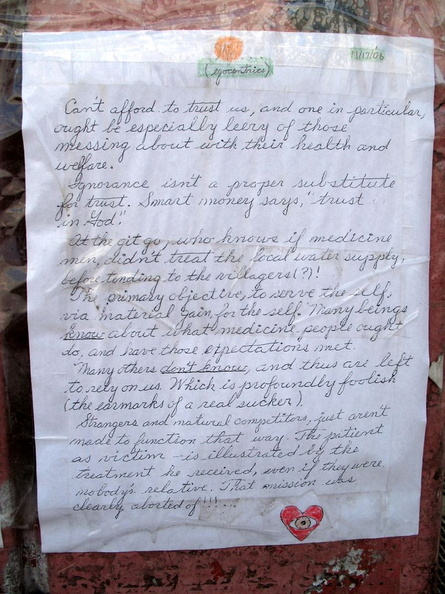 (egocentrics)
11/17/06
Can't afford to trust us, and one in particular,
ought be especially leery of those
messing about with their health and
welfare.
Ignorance isn't a proper substitute
for trust. Smart money says, "trust
in God".
At the git go, who knows if medicine
men, didn't treat the local water supply,
before tending to the villagers(?)!
The primary objective, to serve the self,
via material gain for the self. Many beings
know about what medicine people ought
do, and have those expectations met.
Many others don't know, and thus are left
to rely on us. Which is profoundly foolish
(the earmarks of a real sucker).
Strangers and natural competitors, just aren't
made to function that way. The patient
as victim - is illustrated by the
treatment he received, even if they were
nobody's relative. That mission was
clearly aborted of!!!...